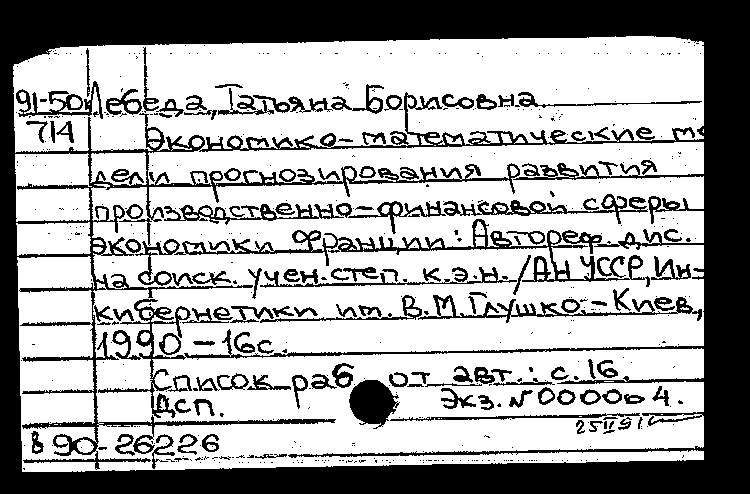 91-50 Лебеда, Татьяна Борисовна
714
Экономико-математические мо
дели прогнозирования развития
производственно-финансовой сферы
экономики Франции: Автореф. дис.
на соиск. учен. степ. к.э.н. / АН УССР, Ин-
кибернетики им. В.М. Глушко. - Киев,
1990. - 16 с.
Список раб от авт.: с. 16.
Дсп. Экз. N 000004.
25 II 91
в 90-26226